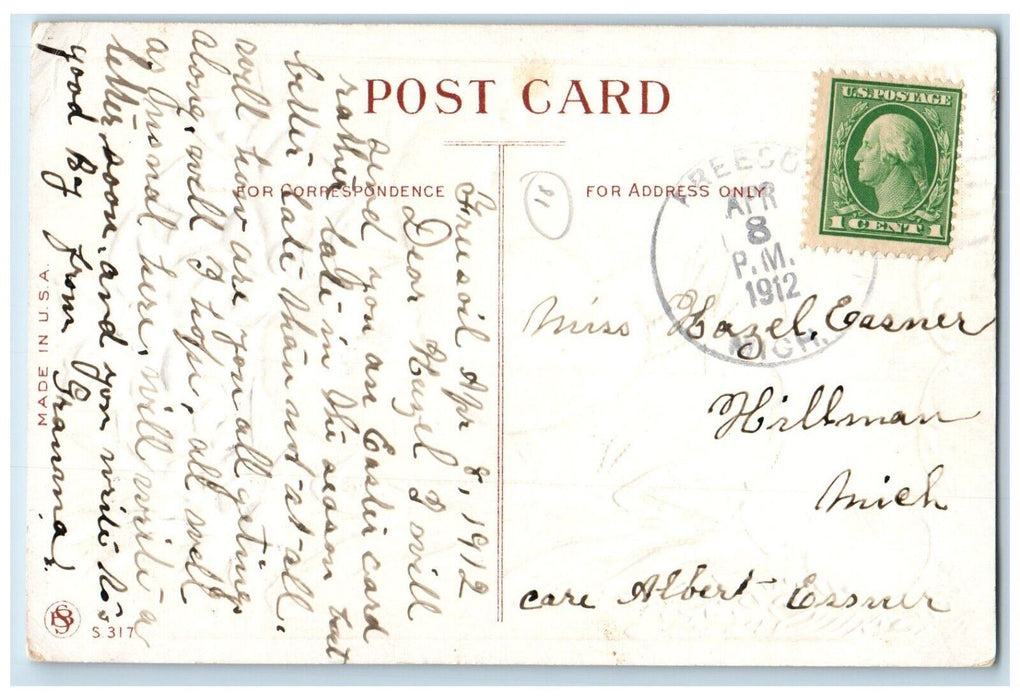 POST CARD
FOR CORRESPONDENCE
FOR ADDRESS ONLY
U.S. POSTAGE
1 CENT 1
FREESO
APR
8
P.M.
1912
MICH.
Miss Hazel, Eassner
Hillman
Mich
care Albert Essner
Freesoil Apr 8, 1912
Dear Hazel I will
send you an Easter card
rather late in the season but
better late than not at all.
well how are you all getting
along, well I hope, all well
as usual here, will write a
letter soon, and you write to
good By from Gramma.
MADE IN U.S.A.
S 317